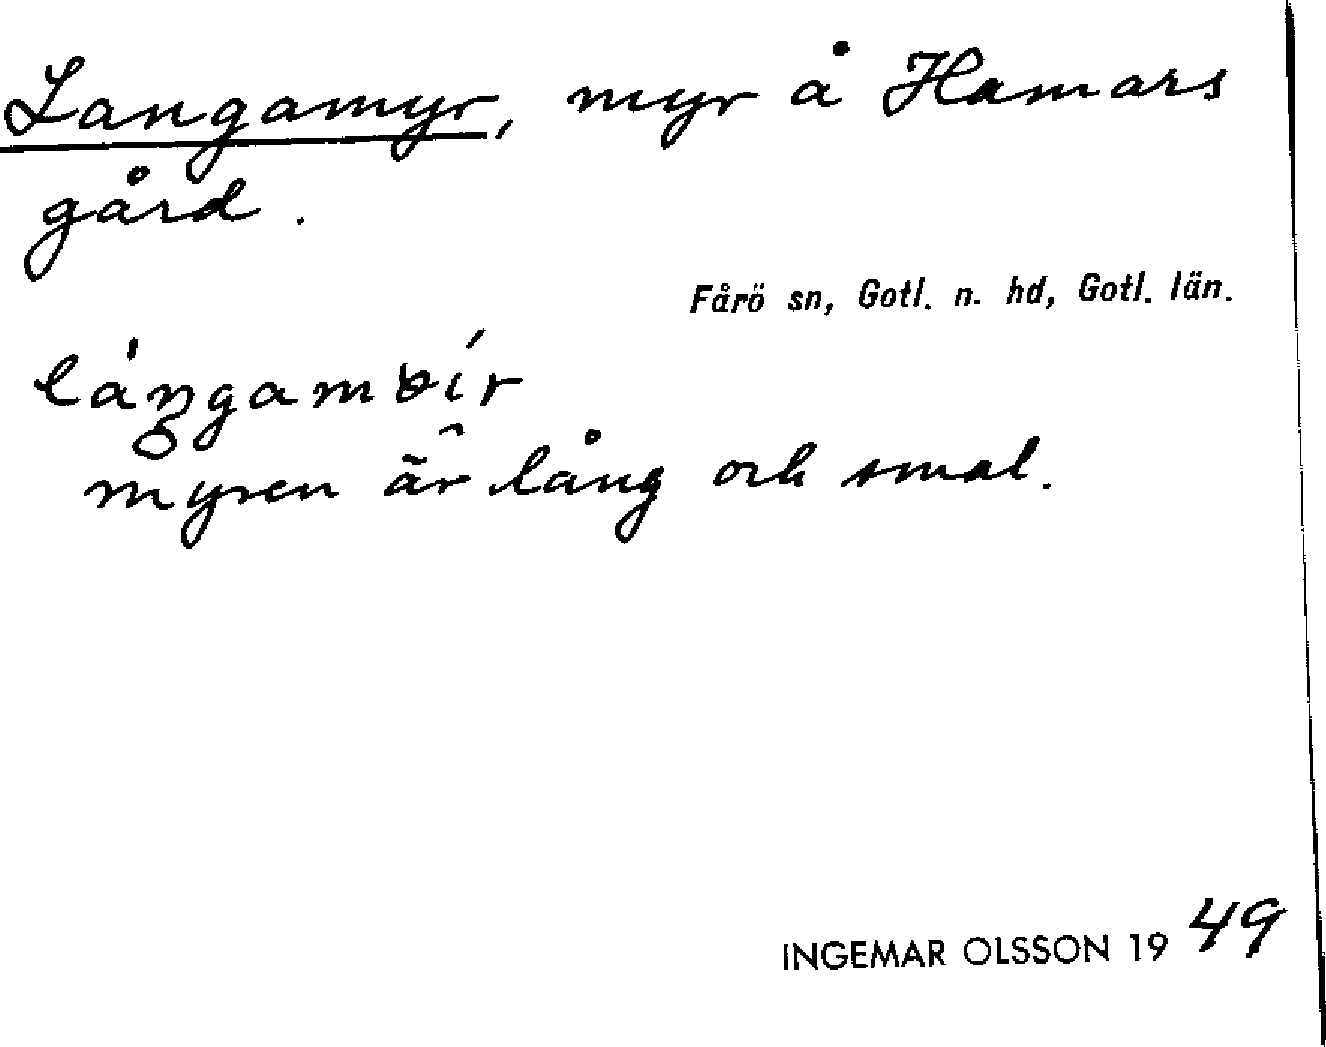 Langamyr, myr å Hamars
gård.
Fårö sn, Gotl. n. hd, Gotl. län.
myren är lång och smal.
INGEMAR OLSSON 19 49